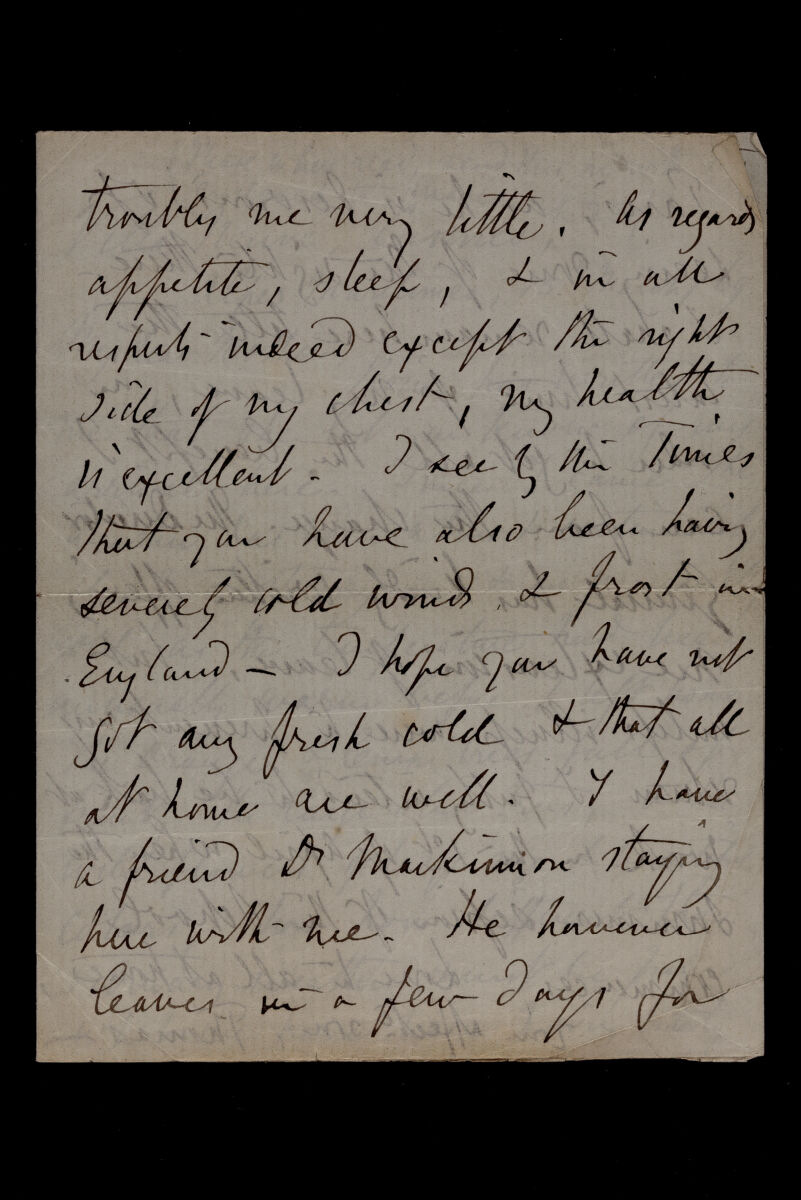 troubles me very little. As regards
appetite, sleep, & in all
respects indeed except the right
side of my chest, my health
is excellent. I see by the Times
that you have also been having
severely cold winds & frost in
England — I hope you have not
got any fresh cold & that all
at home are well. I have
a friend Dr Mackinnon staying
here with me. He however
leaves in a few days for